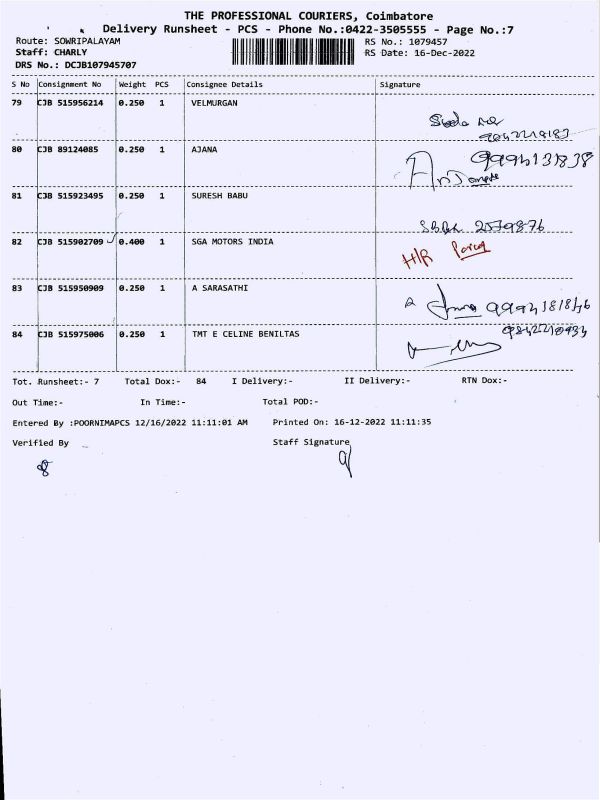 THE PROFESSIONAL COURIERS, Coimbatore
Delivery Runsheet - PCS - Phone No.:0422-3505555 - Page No.:7
Route: SOWRIPALAYAM RS No.: 1079457
Staff: CHARLY RS Date: 16-Dec-2022
DRS No.: DCJB107945707
S No Consignment No Weight PCS Consignee Details Signature
79 CJB 515956214 0.250 1 VELMURGAN
80 CJB 89124085 0.250 1 AJANA
9994131838
81 CJB 515923495 0.250 1 SURESH BABU
2579876
82 CJB 515902709 0.400 1 SGA MOTORS INDIA
H/R
83 CJB 515950909 0.250 1 A SARASATHI
A
84 CJB 515975006 0.250 1 TMT E CELINE BENILTAS
Tot. Runsheet:- 7 Total Dox:- 84 I Delivery:- II Delivery:- RTN Dox:-
Out Time:- In Time:- Total POD:-
Entered By :POORNIMAPCS 12/16/2022 11:11:01 AM Printed On: 16-12-2022 11:11:35
Verified By Staff Signature